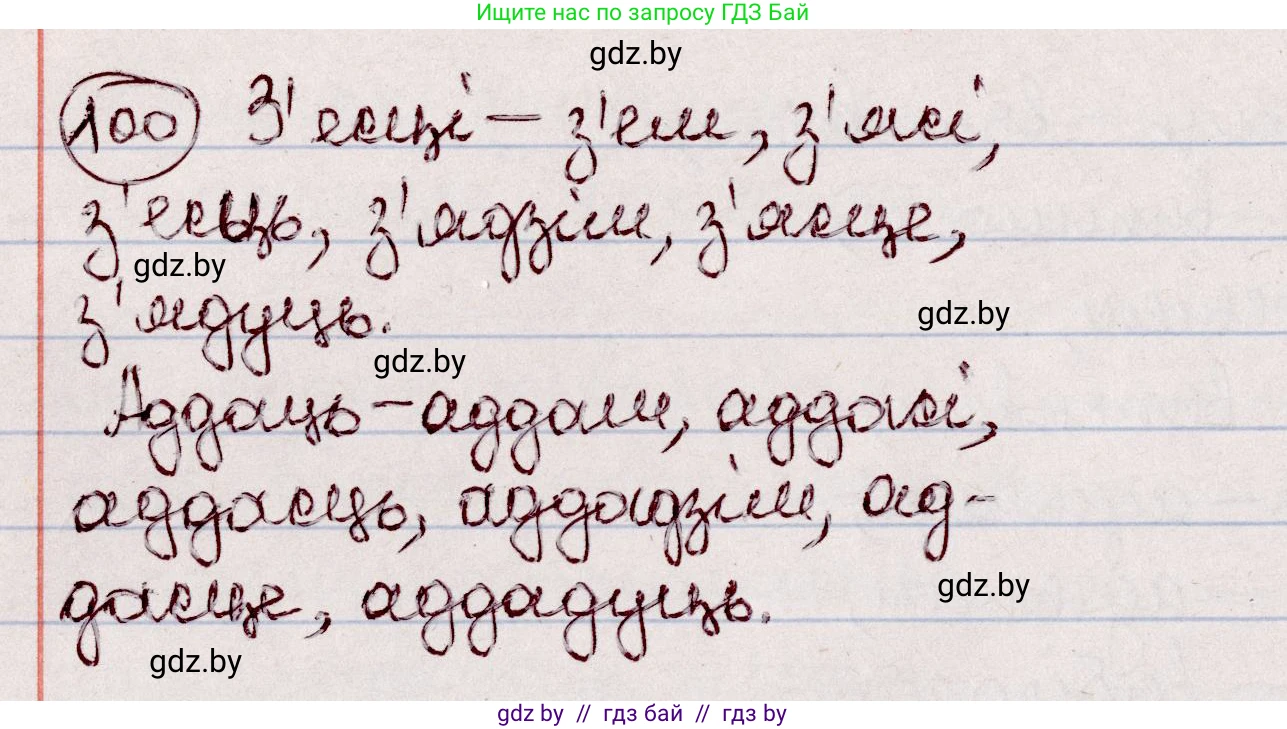 Ищите нас по запросу ГДЗ Бай
gdz.by
100 З'есці – з'ем, з'ясі,
з'есць, з'ядзім, з'ясце,
gdz.by
з'ядуць.
gdz.by
gdz.by
Аддаць – аддам, аддасі,
аддасць, аддадзім, ад-
дасце, аддадуць.
gdz.by
gdz.by
gdz by // гдз бай // гдз by